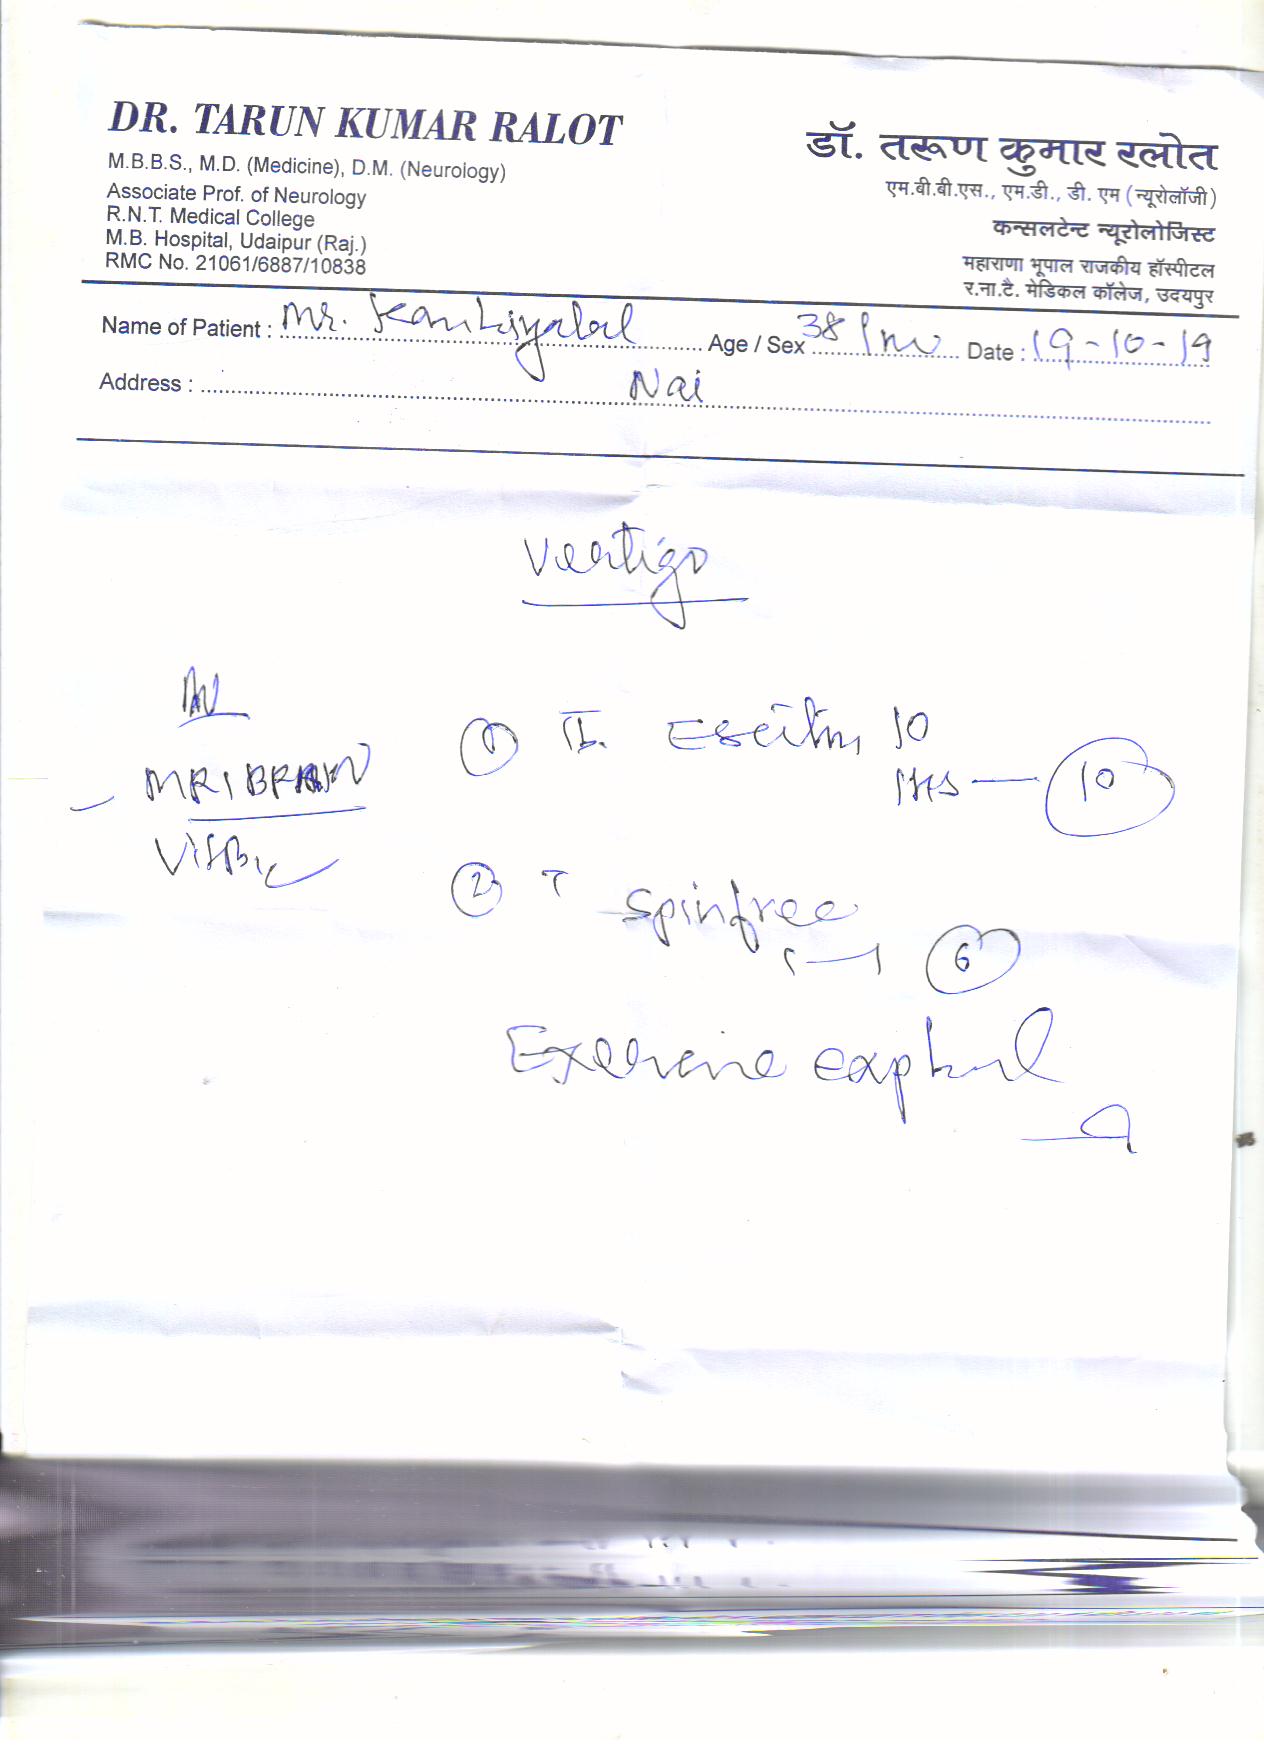 DR. TARUN KUMAR RALOT
M.B.B.S., M.D. (Medicine), D.M. (Neurology)
Associate Prof. of Neurology
R.N.T. Medical College
M.B. Hospital, Udaipur (Raj.)
RMC No. 21061/6887/10838
डॉ. तरूण कुमार रलोत
एम.बी.बी.एस., एम.डी., डी. एम (न्यूरोलॉजी)
कन्सलटेन्ट न्यूरोलोजिस्ट
महाराणा भूपाल राजकीय हॉस्पीटल
र.ना.टै. मेडिकल कॉलेज, उदयपुर
Name of Patient : Mr. Kanhiyalal Age / Sex 38 / m Date : 19-10-19
Address : Nai
Vertigo
MRI BRAIN
① 10
HS — 10
② T Spinfree
1—1 6
Exercise